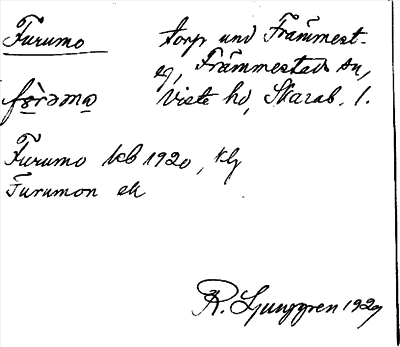 Furumo torp und Främmest.
eg, Främmestads sn,
Viste hd, Skarab. l.
Furumo kb 1920,
Furumon ek
R. Ljunggren 1929